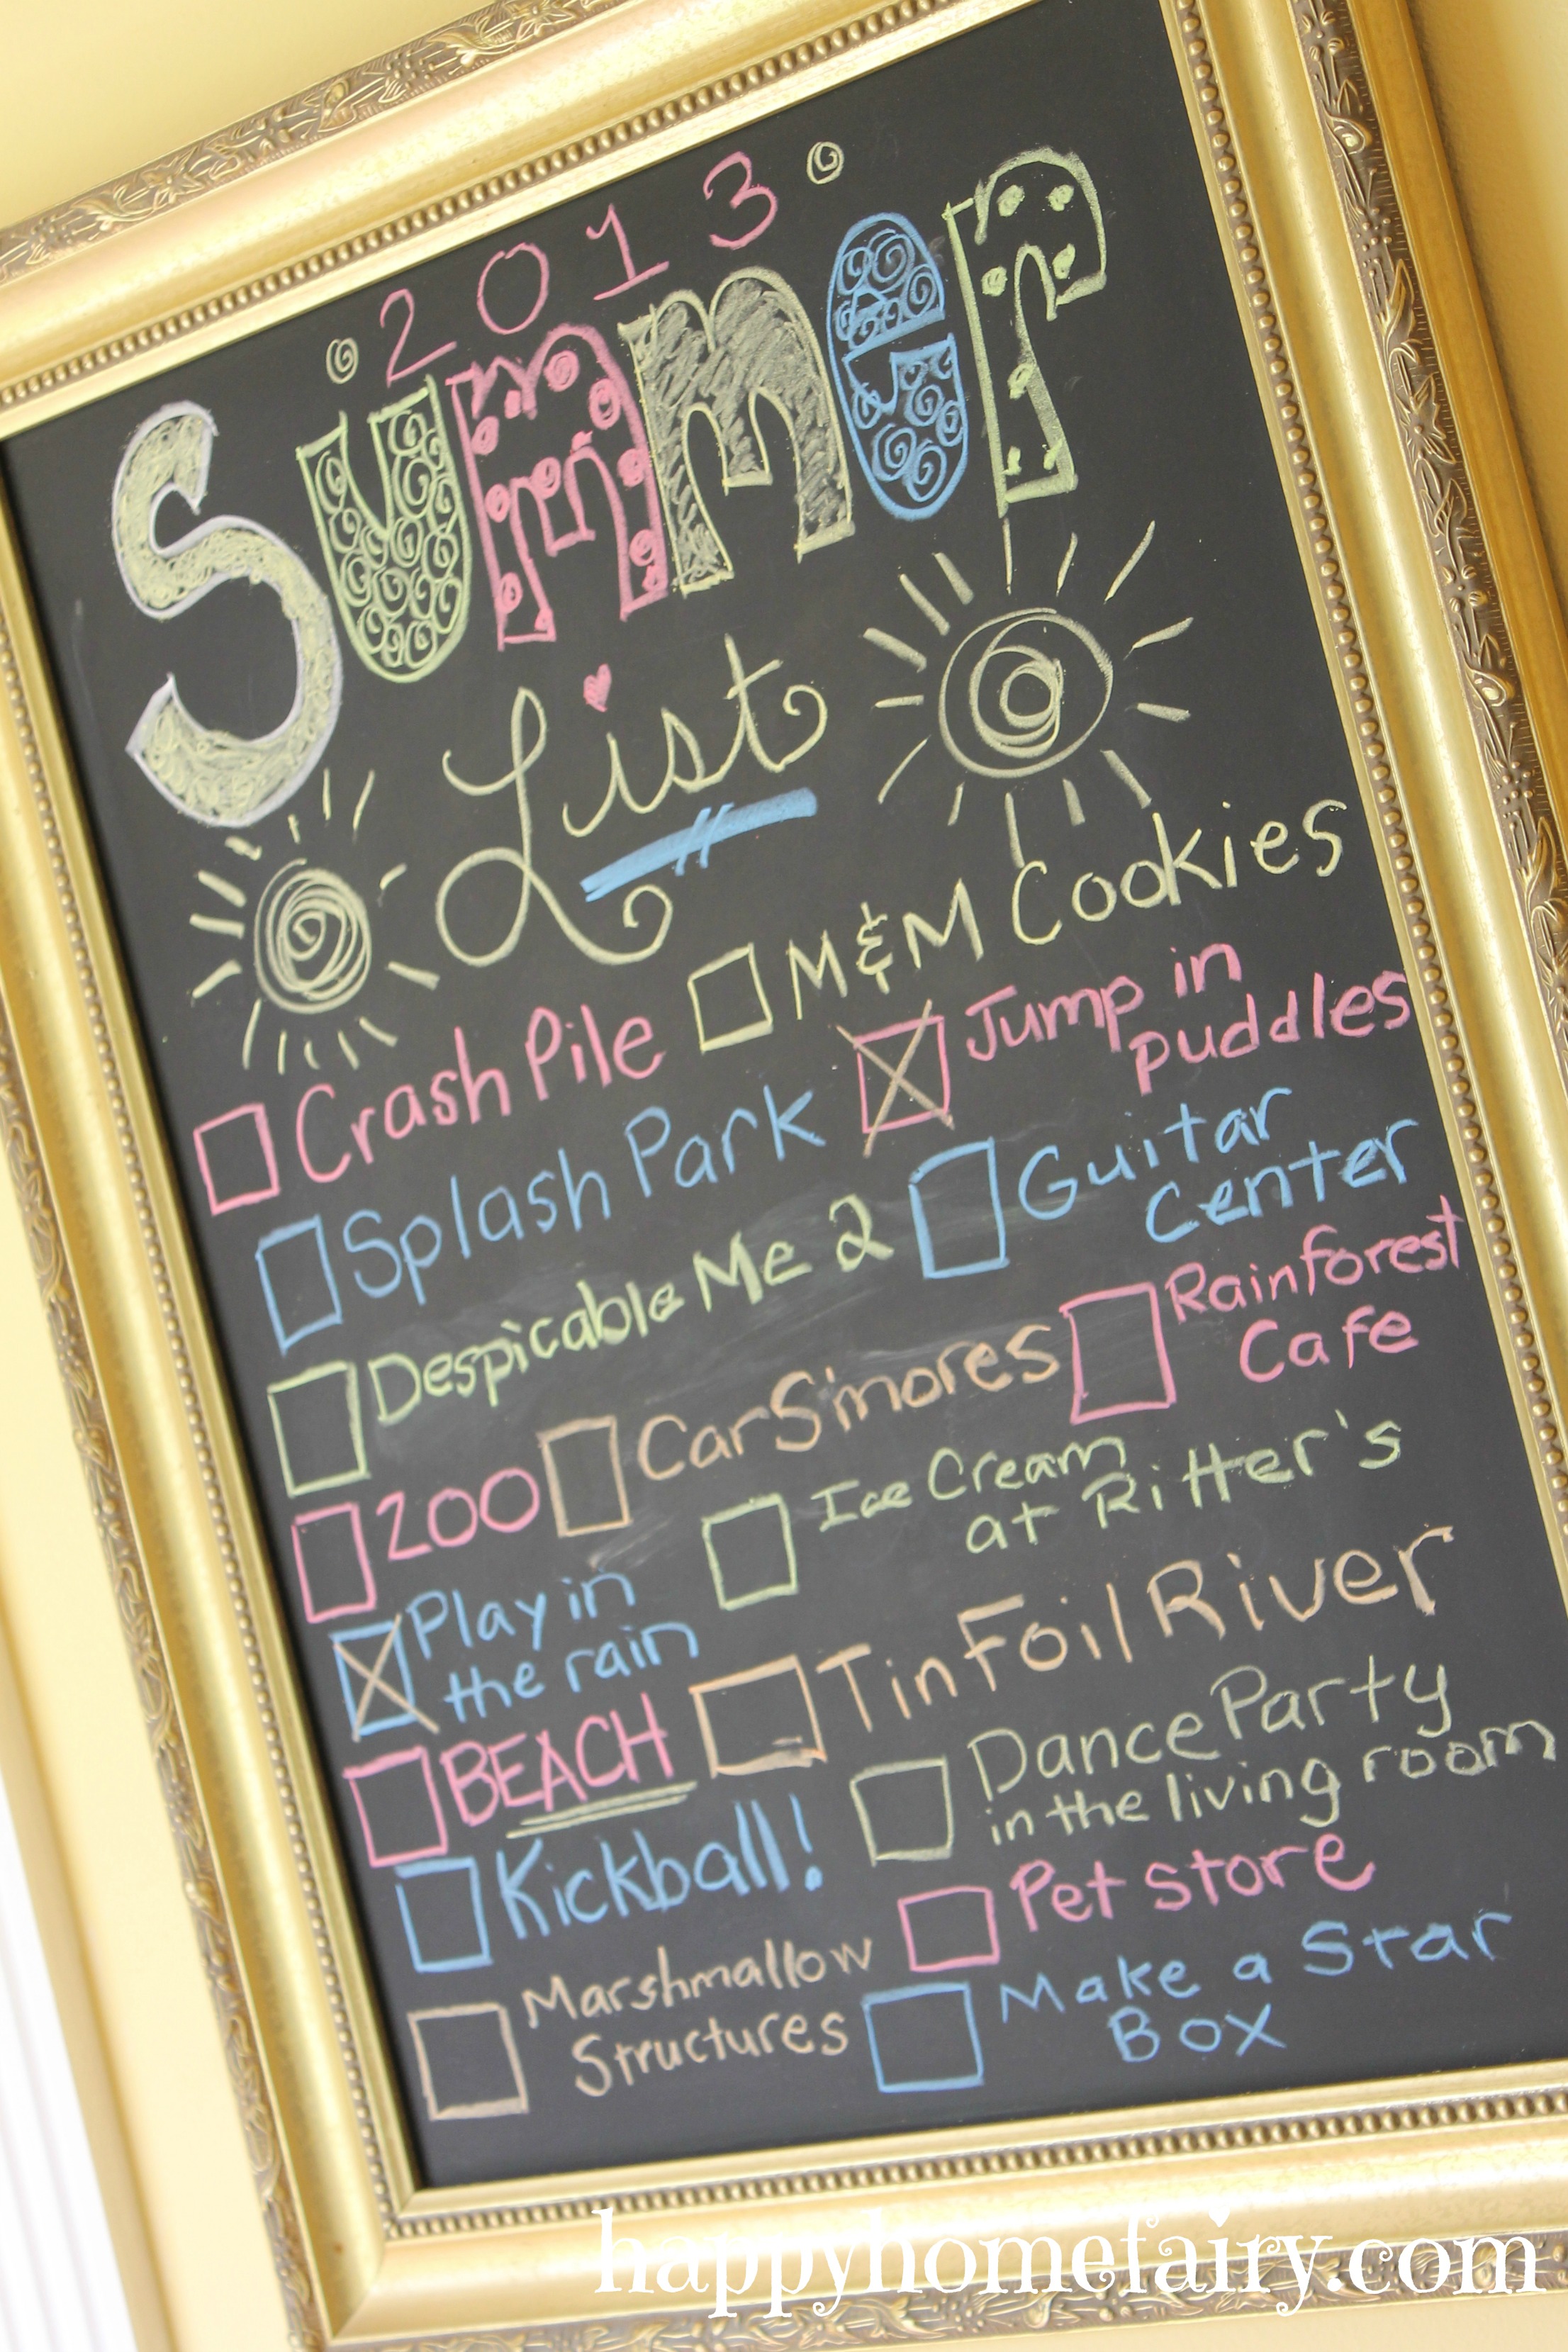 2013
Summer
List
M&M Cookies
Crash Pile
Jump in
puddles
Splash Park
Guitar
Center
Despicable Me 2
Rainforest
Cafe
Car S'mores
ZOO
Ice Cream
at Ritter's
Play in
the rain
Tin Foil River
BEACH
Dance Party
in the living room
Kickball!
Pet store
Marshmallow
Structures
Make a Star
Box
happyhomefairy.com